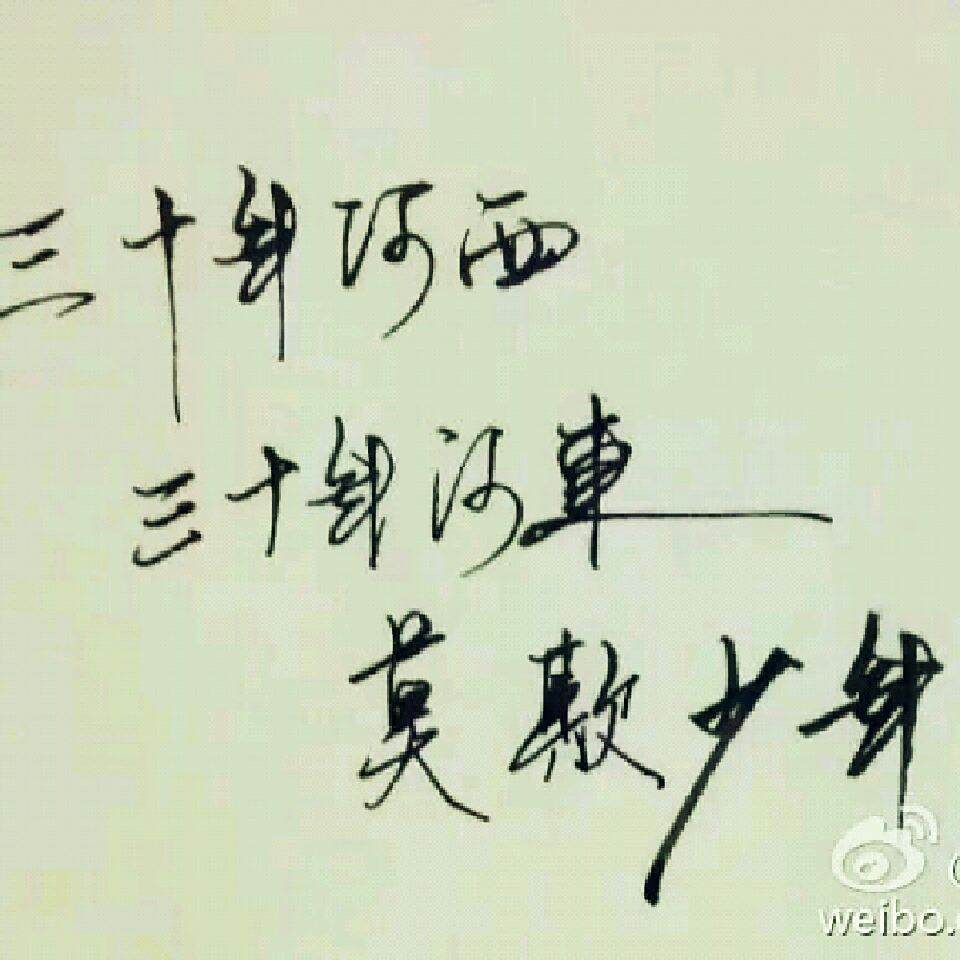 三十年河西
三十年河東
莫欺少年
weibo.